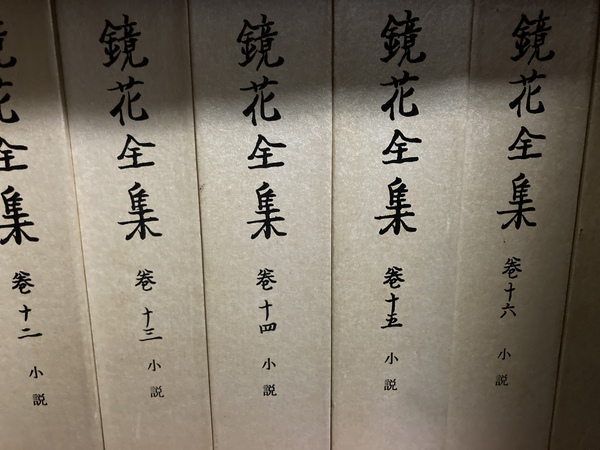 鏡花全集 巻十二 小説
鏡花全集 巻十三 小説
鏡花全集 巻十四 小説
鏡花全集 巻十五 小説
鏡花全集 巻十六 小説